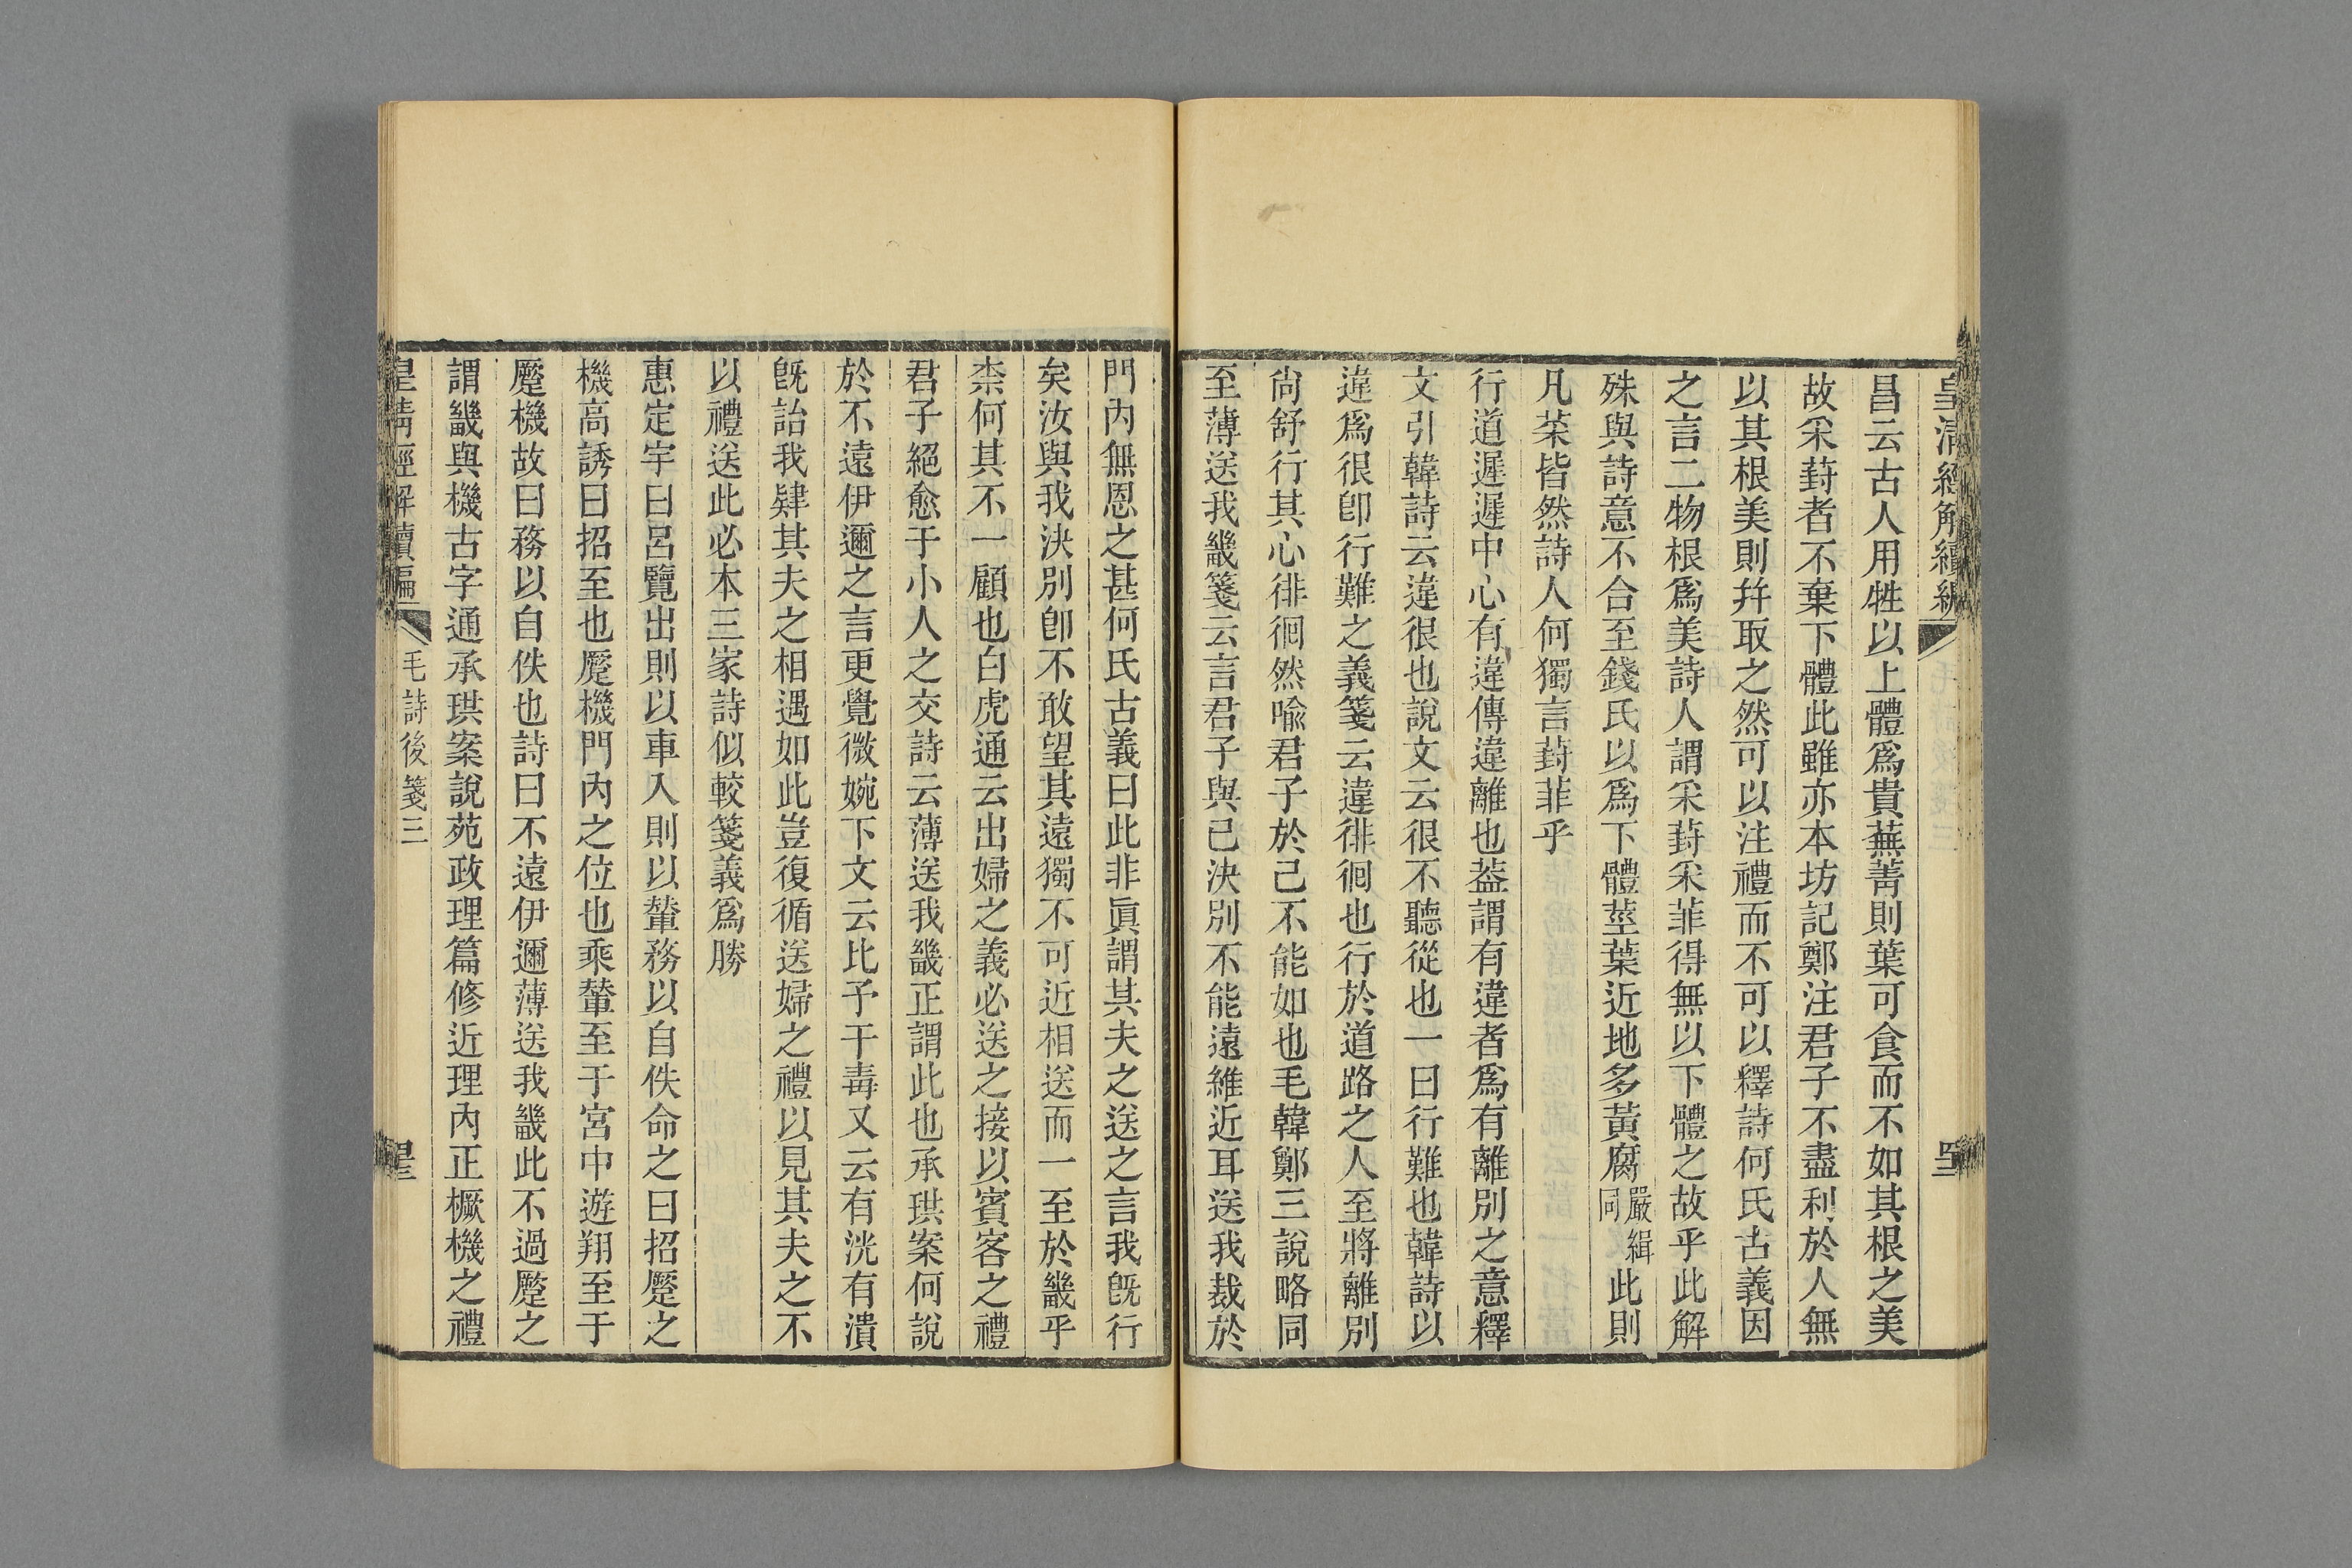 皇清經解續編
昌云古人用牲以上體爲貴蕪菁則葉可食而不如其根之美
故采葑者不棄下體此雖亦本坊記鄭注君子不盡利於人無
以其根美則幷取之然可以注禮而不可以釋詩何氏古義因
之言二物根爲美詩人謂采葑采菲得無以下體之故乎此解
殊與詩意不合至錢氏以爲下體莖葉近地多黃腐嚴緝同此則
凡菜皆然詩人何獨言葑菲乎
行道遲遲中心有違傳違離也葢謂有違者爲有離別之意釋
文引韓詩云違很也說文云很不聽從也一曰行難也韓詩以
違爲很卽行難之義箋云違徘徊也行於道路之人至將離別
尙舒行其心徘徊然喩君子於己不能如也毛韓鄭三說略同
至薄送我畿箋云言君子與己決別不能遠維近耳送我裁於
門內無恩之甚何氏古義曰此非眞謂其夫之送之言我旣行
矣汝與我決別卽不敢望其遠獨不可近相送而一至於畿乎
柰何其不一顧也白虎通云出婦之義必送之接以賓客之禮
君子絕愈于小人之交詩云薄送我畿正謂此也承珙案何說
於不遠伊邇之言更覺微婉下文云比予于毒又云有洸有潰
旣詒我肄其夫之相遇如此豈復循送婦之禮以見其夫之不
以禮送此必本三家詩似較箋義爲勝
惠定宇曰呂覽出則以車入則以輦務以自佚命之曰招蹷之
機高誘曰招至也蹷機門內之位也乘輦至于宮中遊翔至于
蹷機故曰務以自佚也詩曰不遠伊邇薄送我畿此不過蹷之
謂畿與機古字通承珙案說苑政理篇修近理內正橛機之禮
皇清經解續編
毛詩後箋三